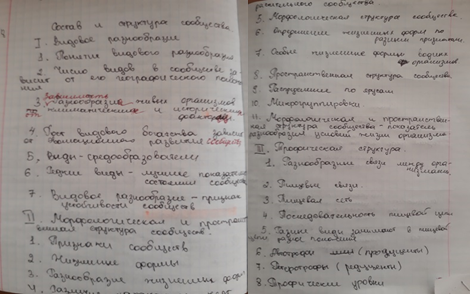 Состав и структура сообщества
I. Видовое разнообразие
1. Понятие видового разнообразия
2. Число видов в сообществе за-
висит от его географического положе-
ния
3. Зависимость
разнообразие живых организмов
от климатических и исторических
факторов
4. видового богатства зависит
от эволюционного развития сообществ
5. Виды-средообразователи
6. Редкие виды - лучшие показатели
состояния сообществ
7. Видовое разнообразие - признак
устойчивости сообществ
II Морфологическая и простран-
венная структура сообществ.
1. Признаки сообществ
2. Жизненные формы
3. Разнообразие жизненных форм
4.
растительного сообщества
5. Морфологическая структура сообществ
6. жизненных форм по
разным
7. жизненные формы водных
организмов
8. Пространственная структура сообществ
9. Распределение по ярусам
10. Микрогруппировки
11. Морфологическая и пространствен-
ная структура сообщества - показатель
разнообразия условий жизни организмов
III. Трофическая структура.
1. Разнообразные связи между орга-
низмами.
2. Пищевые связи.
3. Пищевая сеть
4. Последовательность пищевой цепи
5. Разные виды занимают в пищевой
цепи разное положение
6. Автотрофы или (продуценты)
7. (редуценты)
8. Трофические уровни